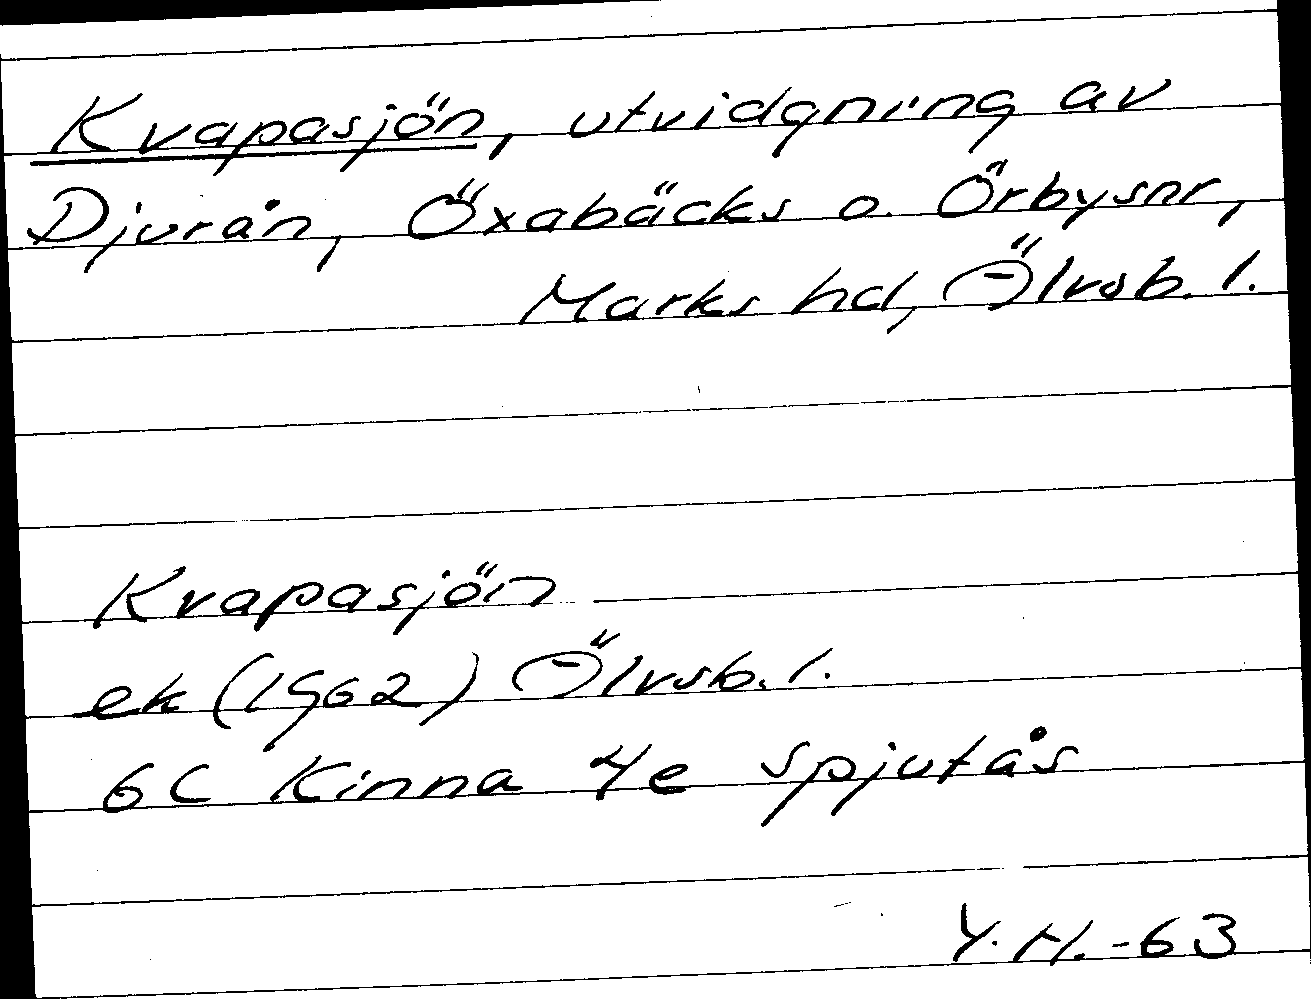 Kvapasjön, utvidgning av
Djurån, Öxabäcks o. Örbysnr,
Marks hd, Älvsb. l.
Kvapasjön
ek (1962) Älvsb. l.
6C Kinna 4e Spjutås
Y. H. -63